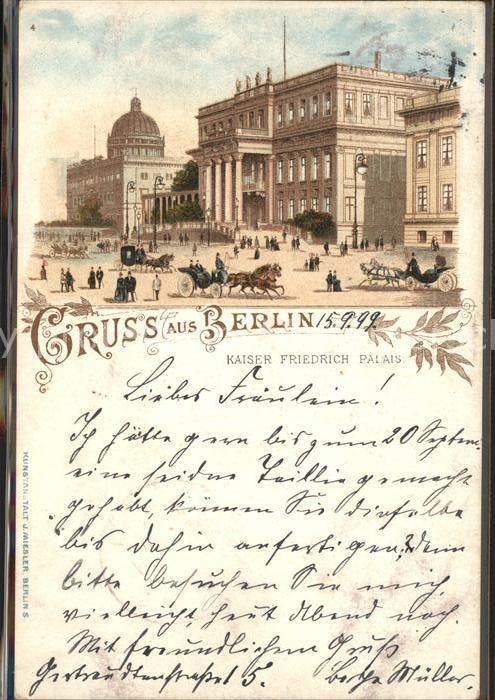 4
GRUSS AUS BERLIN 15.9.99
KAISER FRIEDRICH PALAIS.
Liebes Fräulein!
Ich hätte gern bis zum 20 Septem.
eine seidne Taillie gemacht
gehabt, können Sie dieselbe
bis dahin anfertigen? Dann
bitte besuchen Sie mich
vielleicht heut Abend noch.
Mit freundlichem Gruß
Gertraudtenstraße 15. Müller.
KUNSTANSTALT J. MIESLER, BERLIN S